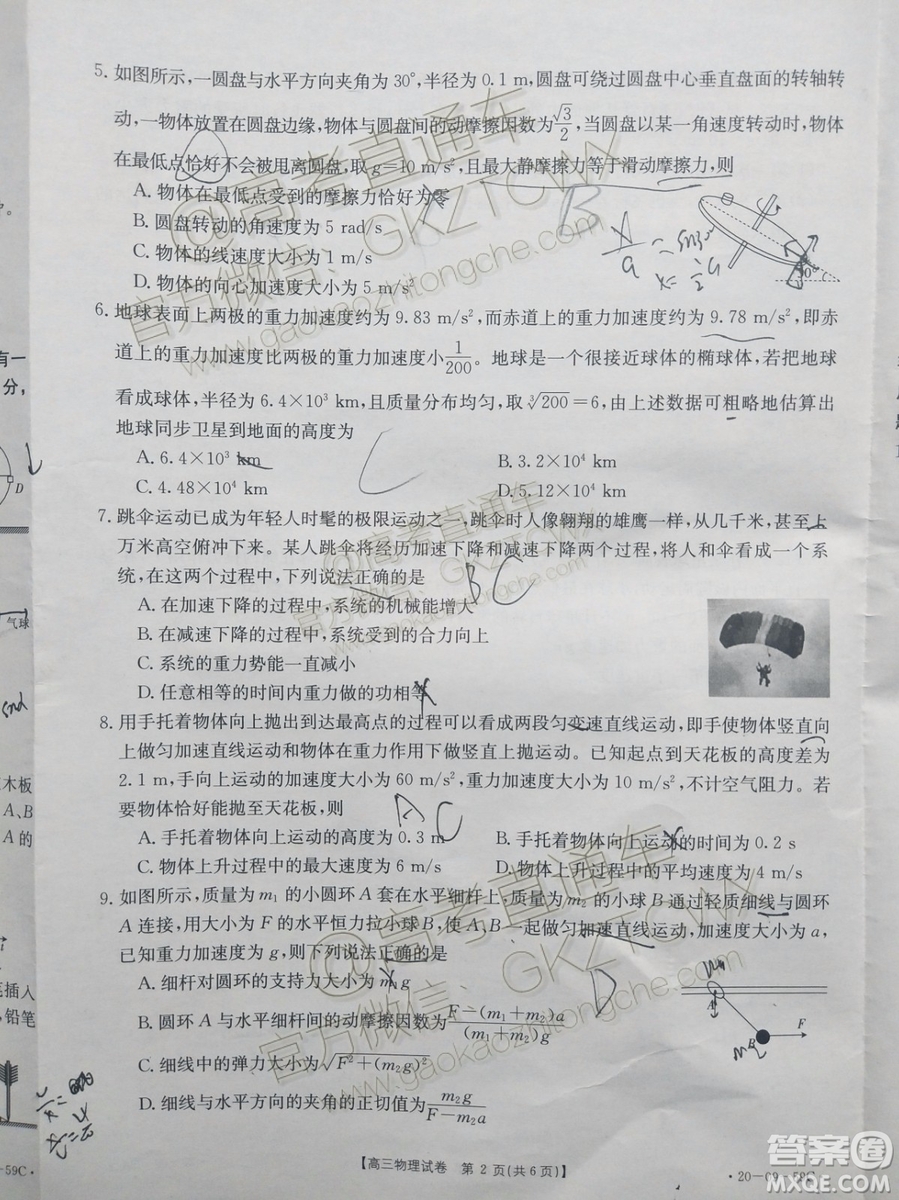 5. 如图所示,一圆盘与水平方向夹角为30°,半径为0.1 m,圆盘可绕过圆盘中心垂直盘面的转轴转
动,一物体放置在圆盘边缘,物体与圆盘间的动摩擦因数为√3/2,当圆盘以某一角速度转动时,物体
在最低点恰好不会被甩离圆盘,取g=10 m/s²,且最大静摩擦力等于滑动摩擦力,则
A. 物体在最低点受到的摩擦力恰好为零
B. 圆盘转动的角速度为5 rad/s
C. 物体的线速度大小为1 m/s
D. 物体的向心加速度大小为5 m/s²
B
30°
6. 地球表面上两极的重力加速度约为9.83 m/s²,而赤道上的重力加速度约为9.78 m/s²,即赤
道上的重力加速度比两极的重力加速度小1/200。地球是一个很接近球体的椭球体,若把地球
看成球体,半径为6.4×10³ km,且质量分布均匀,取∛200=6,由上述数据可粗略地估算出
地球同步卫星到地面的高度为
A. 6.4×10³ km
B. 3.2×10⁴ km
C. 4.48×10⁴ km
D. 5.12×10⁴ km
C
7. 跳伞运动已成为年轻人时髦的极限运动之一,跳伞时人像翱翔的雄鹰一样,从几千米,甚至上
万米高空俯冲下来。某人跳伞将经历加速下降和减速下降两个过程,将人和伞看成一个系
统,在这两个过程中,下列说法正确的是
BC
A. 在加速下降的过程中,系统的机械能增大
B. 在减速下降的过程中,系统受到的合力向上
C. 系统的重力势能一直减小
D. 任意相等的时间内重力做的功相等
8. 用手托着物体向上抛出到达最高点的过程可以看成两段匀变速直线运动,即手使物体竖直向
上做匀加速直线运动和物体在重力作用下做竖直上抛运动。已知起点到天花板的高度差为
2.1 m,手向上运动的加速度大小为60 m/s²,重力加速度大小为10 m/s²,不计空气阻力。若
要物体恰好能抛至天花板,则
AC
A. 手托着物体向上运动的高度为0.3 m
B. 手托着物体向上运动的时间为0.2 s
C. 物体上升过程中的最大速度为6 m/s
D. 物体上升过程中的平均速度为4 m/s
9. 如图所示,质量为m₁的小圆环A套在水平细杆上,质量为m₂的小球B通过轻质细线与圆环
A连接,用大小为F的水平恒力拉小球B,使A、B一起做匀加速直线运动,加速度大小为a,
已知重力加速度为g,则下列说法正确的是
A. 细杆对圆环的支持力大小为m₁g
B. 圆环A与水平细杆间的动摩擦因数为(F−(m₁+m₂)a)/((m₁+m₂)g)
C. 细线中的弹力大小为√(F²+(m₂g)²)
D. 细线与水平方向的夹角的正切值为m₂g/(F−m₂a)
D
A
B
F
m₂
【高三物理试卷 第2页(共6页)】
·20-09-59C·
有一
分,
D
气球
木板
A、B
A的
插入
,铅笔
-59C·
@高考直通车
官方微信:GKZTCWX
www.gaokaozhitongche.com
@高考直通车
官方微信:GKZTCWX
www.gaokaozhitongche.com
@高考直通车
官方微信:GKZTCWX
www.gaokaozhitongche.com
答案圈
MXQE.COM